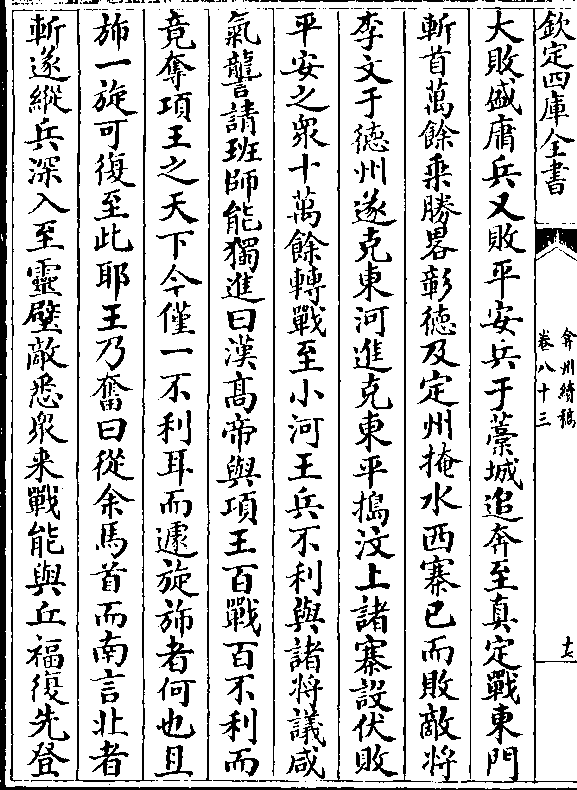 欽定四庫全書
弇州續稿
卷八十三
大敗盛庸兵又敗平安兵于藁城追奔至真定戰東門
斬首萬餘乘勝畧彰德及定州掩水西寨已而敗敵將
李文于德州遂克東河進克東平搗汶上諸寨設伏敗
平安之衆十萬餘轉戰至小河王兵不利與諸將議咸
氣讋請班師能獨進曰漢髙帝與項王百戰百不利而
竟奪項王之天下今僅一不利耳而遽旋斾者何也且
斾一旋可復至此耶王乃奮曰從余馬首而南言北者
斬遂縱兵深入至靈壁敵悉衆来戰能與丘福復先登